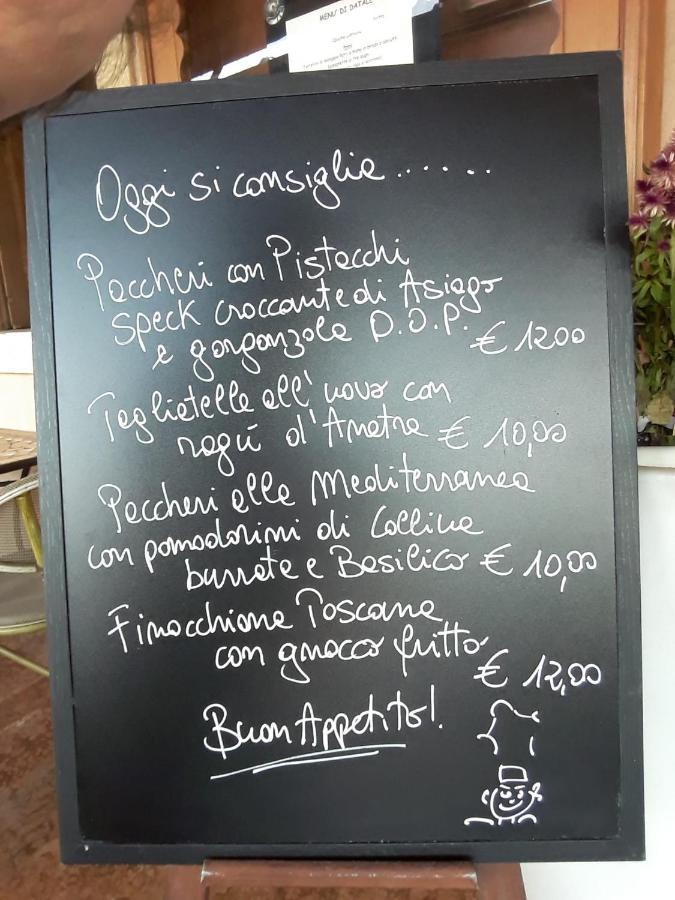 MENU DI NATALE
Oggi si consiglia.......
Paccheri con Pistacchi
speck croccante di Asiago
e gorgonzola D.O.P. € 12,00
Tagliatelle all'uovo con
ragù d'Anatra € 10,00
Paccheri alla Mediterranea
con pomodorini di Collina
burrata e Basilico € 10,00
Finocchiona Toscana
con gnocco fritto
€ 12,00
Buon Appetito!